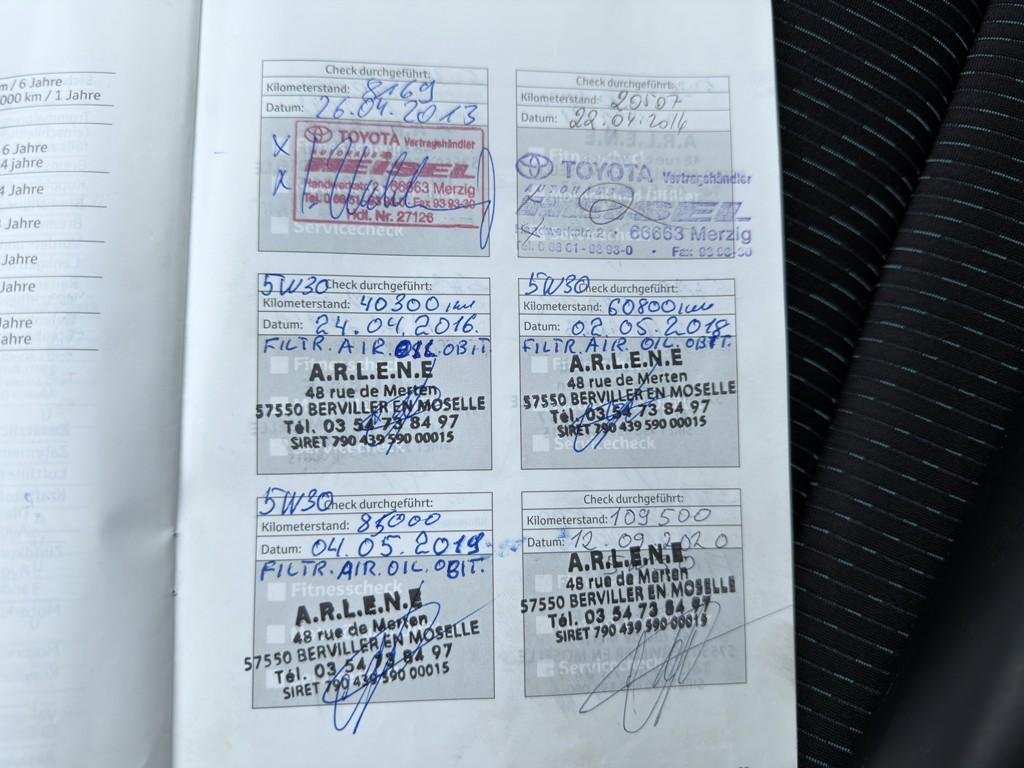 m / 6 Jahre
000 km / 1 Jahre
6 Jahre
4 jahre
4 Jahre
Jahre
Jahre
Jahre
Jahre
ahre
Check durchgeführt:
Kilometerstand: 8169
Datum: 26.04.2013
X
X
TOYOTA Vertragshändler
66663 Merzig
Fax 93 93-30
Hdl. Nr. 27126
Servicecheck
Check durchgeführt:
Kilometerstand: 20507
Datum: 22.04.2014
TOYOTA Vertragshändler
66663 Merzig
5W30 Check durchgeführt:
Kilometerstand: 40300 km
Datum: 24.04.2016.
FILTR. AIR. OIL. OBIT.
A.R.L.E.N.E
48 rue de Merten
57550 BERVILLER EN MOSELLE
Tél. 03 54 73 84 97
SIRET 790 439 590 00015
5W30 Check durchgeführt:
Kilometerstand: 60800 km
Datum: 02.05.2018
FILTR. AIR. OIL. OBIT.
A.R.L.E.N.E
48 rue de Merten
57550 BERVILLER EN MOSELLE
Tél. 03 54 73 84 97
SIRET 790 439 590 00015
Servicecheck
5W30 Check durchgeführt:
Kilometerstand: 85000
Datum: 04.05.2019
FILTR. AIR. OIL. OBIT.
Fitnesscheck
A.R.L.E.N.E
48 rue de Merten
57550 BERVILLER EN MOSELLE
Tél. 03 54 73 84 97
SIRET 790 439 590 00015
Check durchgeführt:
Kilometerstand: 109500
Datum: 12.09.2020
A.R.L.E.N.E
48 rue de Merten
57550 BERVILLER EN MOSELLE
Tél. 03 54 73 84 97
SIRET 790 439 590 00015
Servicecheck